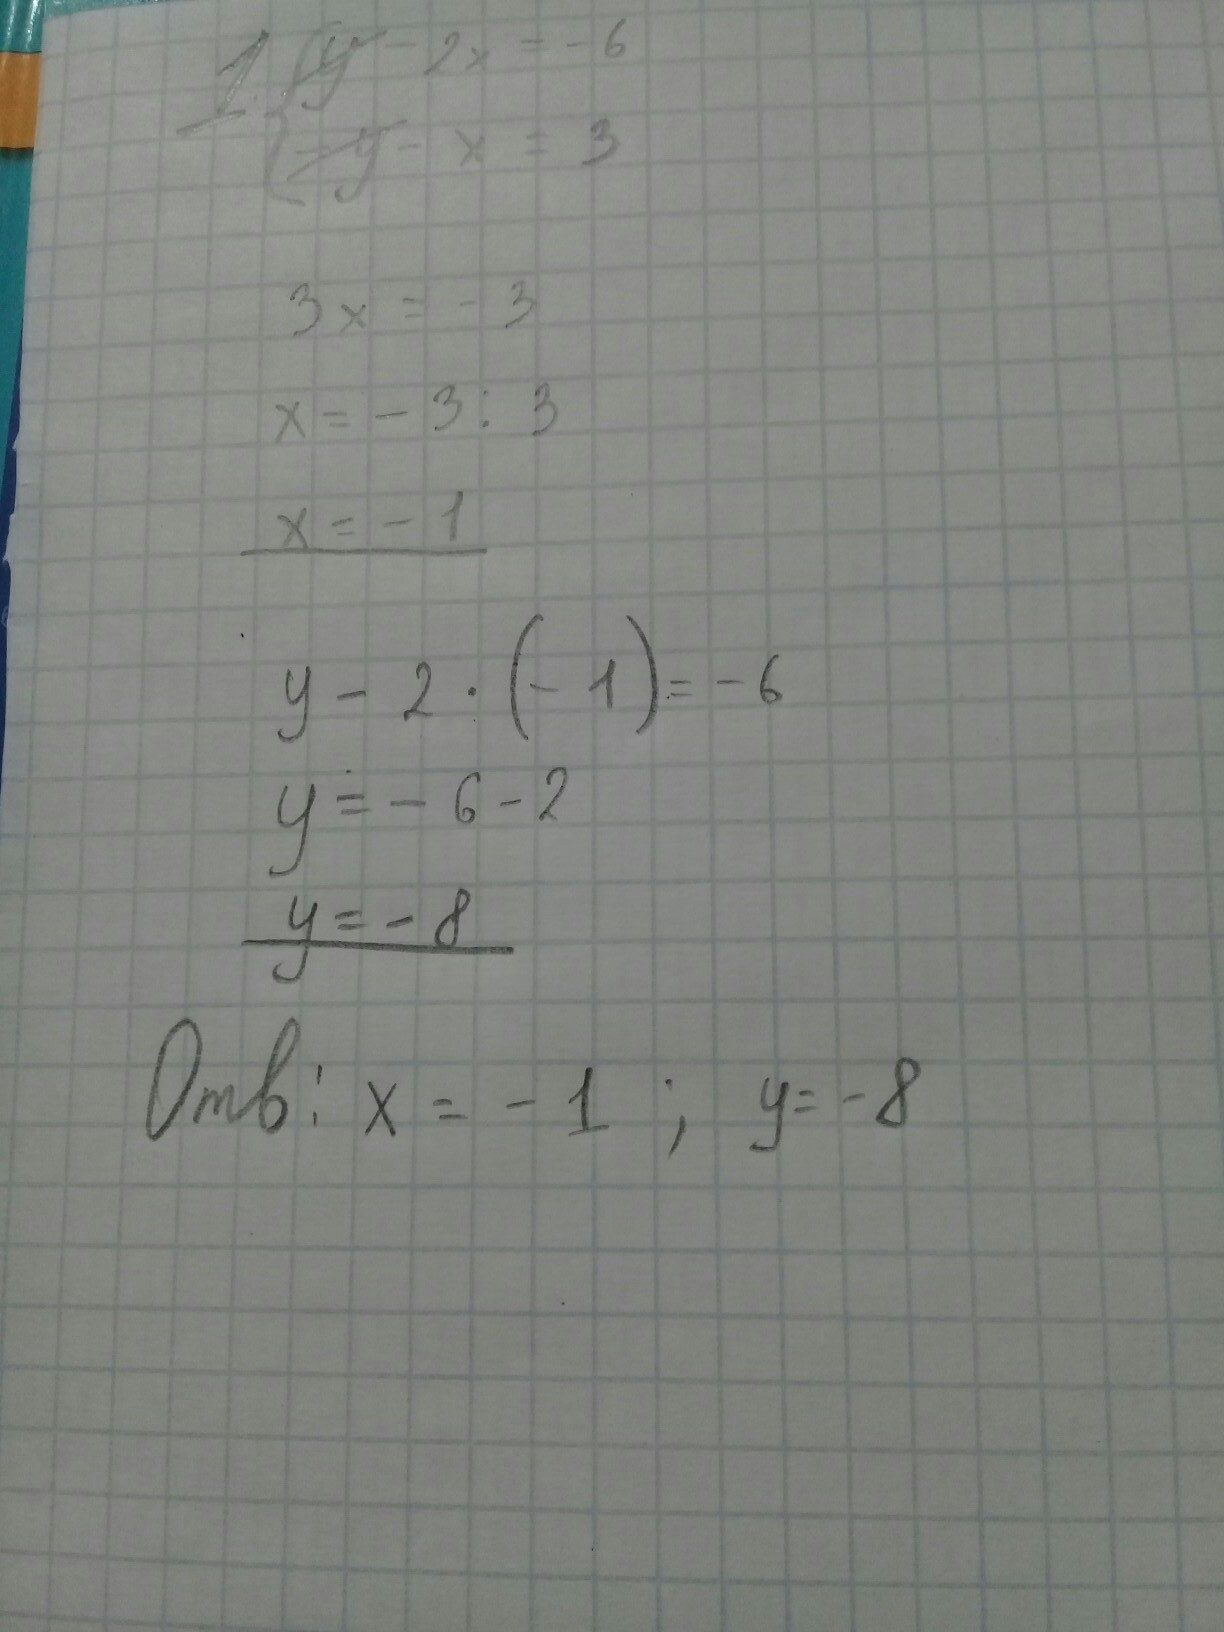 1. { y - 2x = -6
{ - y - x = 3
3x = - 3
x = - 3 : 3
x = - 1
y - 2 · (- 1) = - 6
y = - 6 - 2
y = - 8
Отв: x = - 1 ; y = - 8